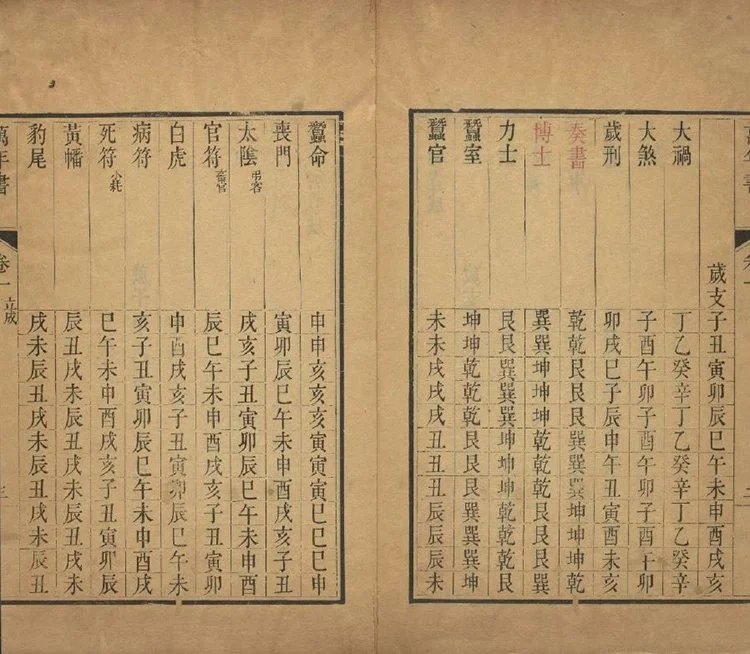 歲支子丑寅卯辰巳午未申酉戌亥
大禍 丁乙癸辛丁乙癸辛丁乙癸辛
大煞 子酉午卯子酉午卯子酉午卯
歲刑 卯戌巳子辰申午丑寅酉未亥
奏書 乾乾艮艮艮巽巽巽坤坤坤乾
博士 巽巽坤坤坤乾乾乾艮艮艮巽
力士 艮艮巽巽巽坤坤坤乾乾乾艮
蠶室 坤坤乾乾乾艮艮艮巽巽巽坤
蠶官 未未戌戌戌丑丑丑辰辰辰未
蠶命 申申亥亥亥寅寅寅巳巳巳申
喪門 寅卯辰巳午未申酉戌亥子丑
太陰 弔客 戌亥子丑寅卯辰巳午未申酉
官符 畜官 辰巳午未申酉戌亥子丑寅卯
白虎 申酉戌亥子丑寅卯辰巳午未
病符 亥子丑寅卯辰巳午未申酉戌
死符 小耗 巳午未申酉戌亥子丑寅卯辰
黃幡 辰丑戌未辰丑戌未辰丑戌未
豹尾 戌未辰丑戌未辰丑戌未辰丑
萬年書 卷一 立成